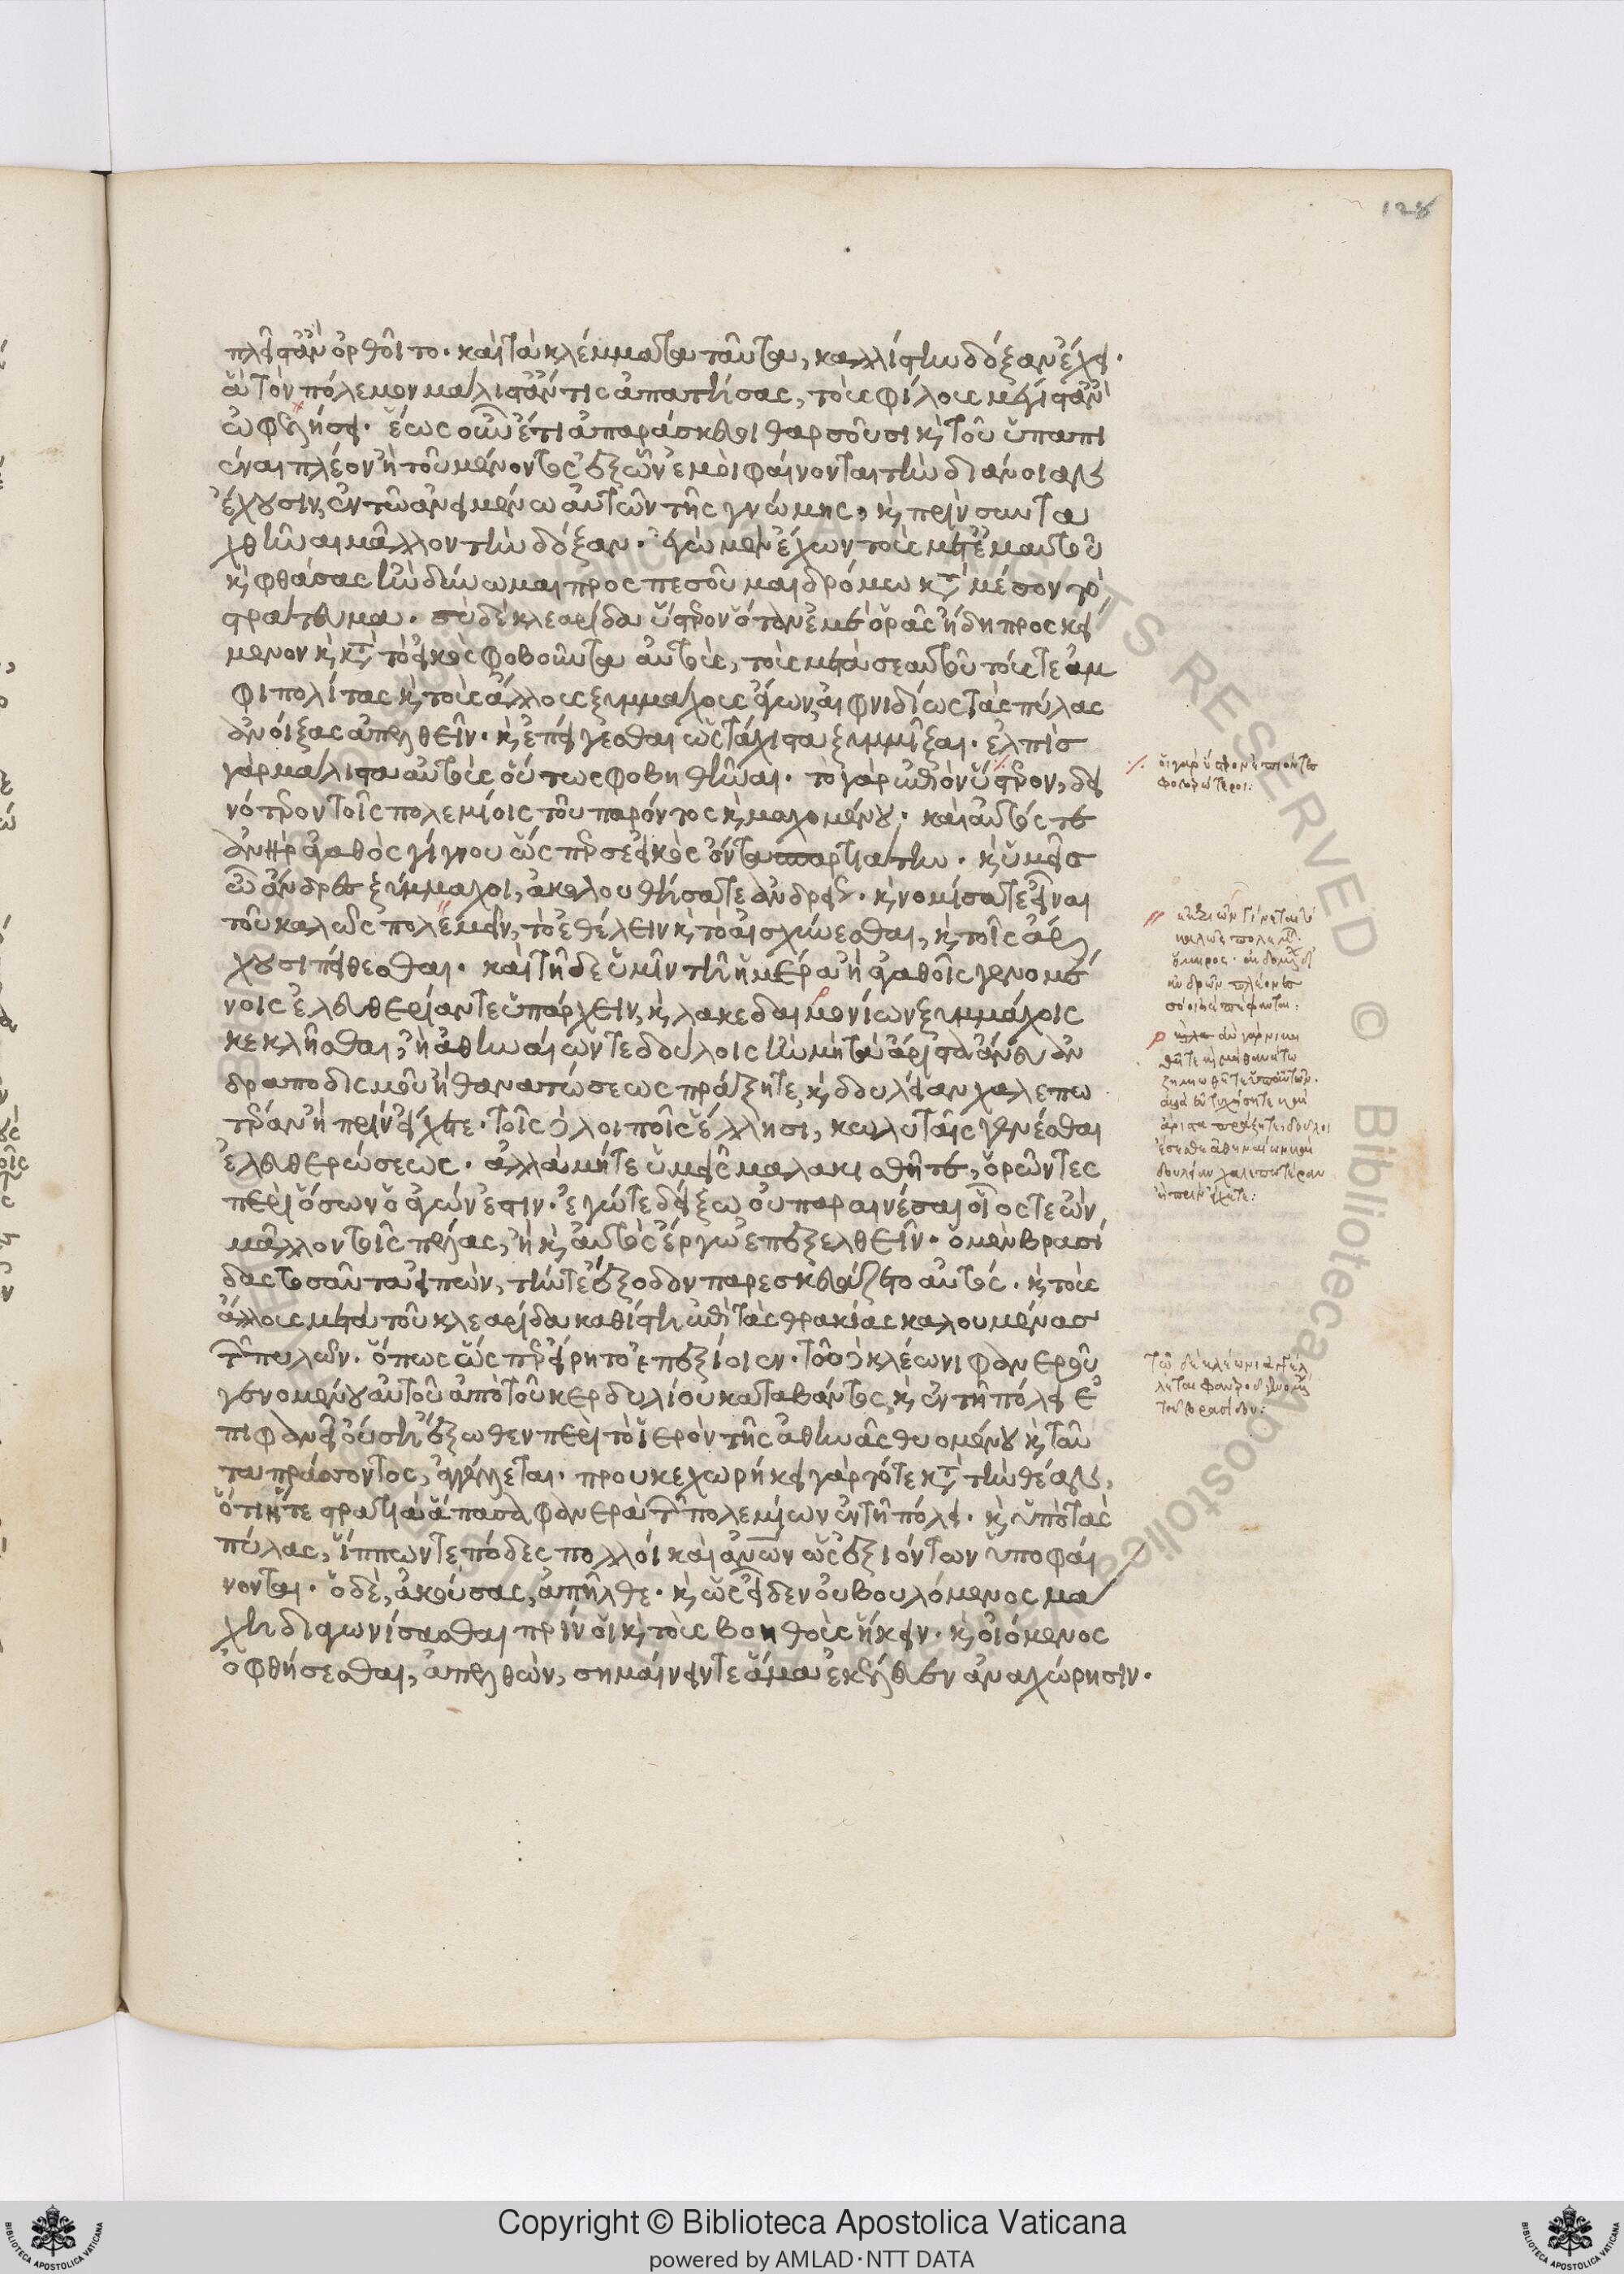 πλεῖστ' ἂν ὀρθοῖτο· καὶ τὰ κλέμματα ταῦτα, καλλίστην δόξαν ἔχει·
ἃ τὸν πόλεμον μάλιστ' ἄν τις ἀπατήσας, τοὺς φίλους μέγιστ' ἂν
ὠφελήσει· ἕως οὖν ἔτι ἀπαράσκευοι θαρσοῦσι κ τοῦ ὑπαπι
έναι πλέον ἢ τοῦ μένοντος ἐξ ὧν ἐμοὶ φαίνονται τὴν διάνοιαν
ἔχουσιν, ἐν τῷ ἀνειμένω αὐτῶν τῆς γνώμης, κ πρὶν συντα
χθῆναι μᾶλλον τὴν δόξαν· ἐγὼ μὲν ἔχων τοὺς μετ' ἐμαυτοῦ
κ φθάσας ἢν δύνωμαι προσπεσοῦμαι δρόμω κατὰ μέσον τὸ
στράτευμα· σὺ δὲ κλεαρίδα ὕστερον ὅταν ἐμὲ ὁρᾶς ἤδη προσκεί
μενον κ κατὰ τὸ εἰκὸς φοβοῦντα αὐτούς, τοὺς μετὰ σεαυτοῦ τούς τε ἀμ
φιπολίτας κ τοὺς ἄλλους ξυμμάχους ἄγων, αἰφνιδίως τὰς πύλας
ἀνοίξας ἀπελθεῖν· κ ἐπείγεσθαι ὡς τάχιστα ξυμμῖξαι· ἐλπὶς
γὰρ μάλιστα αὐτοὺς οὕτως φοβηθῆναι· τὸ γὰρ ἐπιὸν ὕστερον, δει
νότερον τοῖς πολεμίοις τοῦ παρόντος κ μαχομένου· καὶ αὐτός τε
ἀνὴρ ἀγαθὸς γίγνου ὥς περ σε εἰκὸς ὄντα σπαρτιάτην· κ ὑμεῖς
ὦ ἄνδρες ξύμμαχοι, ἀκολουθήσατε ἀνδρείως· κ νομίσατε εἶναι
τοῦ καλῶς πολεμεῖν, τὸ ἐθέλειν κ τὸ αἰσχύνεσθαι, κ τοῖς ἄρ
χουσι πείθεσθαι· καὶ τῆδε ὑμῖν τῆ ἡμέρα ἢ ἀγαθοῖς γενομέ
νοις ἐλευθερίαν τε ὑπάρχειν, κ λακεδαιμονίων ξυμμάχοις
κεκλῆσθαι, ἢ ἀθηναίων τε δούλοις ἢν μὴ τὰ ἄριστα ἄνευ ἀν
δραποδισμοῦ ἢ θανατώσεως πράξητε, κ δουλείαν χαλεπω
τέραν ἢ πρὶν εἴχετε· τοῖς δὲ λοιποῖς ἕλλησι, κωλυταῖς γενέσθαι
ἐλευθερώσεως· ἀλλὰ μήτε ὑμεῖς μαλακισθῆτε, ὁρῶντες
περὶ ὅσων ὁ ἀγών ἐστιν· ἐγώ τε δείξω οὐ παραινέσαι οἷός τε ὢν
μᾶλλον τοῖς πέλας, ἢ κ αὐτὸς ἔργω ἐπεξελθεῖν· ὁ μὲν βρασί
δας τοσαῦτα εἰπών, τήν τε ἔξοδον παρεσκευάζετο αὐτός· κ τοὺς
ἄλλους μετὰ τοῦ κλεαρίδα καθίστη ἐπὶ τὰς θρακίας καλουμένας
τῶν πυλῶν· ὅπως ὥς περ εἴρητο ἐπεξίοιεν· τῶ δὲ κλέωνι φανεροῦ
γενομένου αὐτοῦ ἀπὸ τοῦ κερδυλίου καταβάντος κ ἐν τῆ πόλει ἐ
πιφανεῖ οὔση ἔξωθεν περὶ τὸ ἱερὸν τῆς ἀθηνᾶς θυομένου κ ταῦ
τα πράσσοντος, ἀγγέλλεται· προυκεχωρήκει γὰρ τότε κατὰ τὴν θέαν,
ὅτι ἥ τε στρατιὰ ἅπασα φανερὰ τῶν πολεμίων ἐν τῆ πόλει· κ ὑπὸ τὰς
πύλας, ἵππων τε πόδες πολλοὶ καὶ ἀνθρώπων ὡς ἐξιόντων ὑποφαί
νονται· ὁ δὲ, ἀκούσας, ἀπῆλθε· κ ὡς εἶδεν οὐ βουλόμενος μά
χη διαγωνίσασθαι πρίν οἱ κ τοὺς βοηθοὺς ἥκειν· κ οἰόμενος
ὀφθήσεσθαι, ἀπελθών, σημαίνειν τε ἅμα ἐκέλευεν ἀναχώρησιν·
οἱ γὰρ ὕστερον ἐπιόντες
φοβερώτεροι:
καλῶς πολεμεῖν·
ὅμηρος·
ἀνδρῶν πλέονες
σόοι ἠὲ πέφανται:
ἄριστα πράξητε, δοῦλοι
ἔσεσθε ἀθηναίων καὶ
δουλείαν χαλεπωτέραν
ἢ πρὶν εἴχετε:
τῶ δὲ κλέωνι ἀγγέλ
λεται φανεροῦ γενομένου
τοῦ βρασίδου:
Copyright © Biblioteca Apostolica Vaticana
powered by AMLAD·NTT DATA